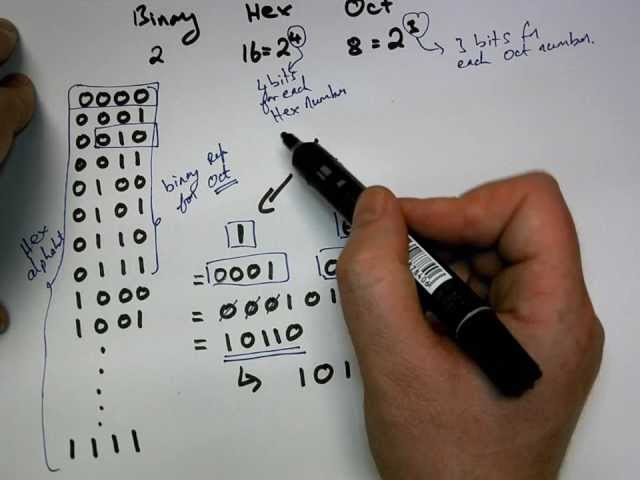 Binary Hex Oct
2 16 = 2^4 8 = 2^3
3 bits for
each Oct number.
4 bits
for each
Hex Number
0 0 0 0
0 0 0 1
0 0 1 0
0 0 1 1
0 1 0 0
0 1 0 1
0 1 1 0
0 1 1 1
1 0 0 0
1 0 0 1
1 1 1 1
Hex
alphabet
binary rep
for Oct
1
= 0001
= 000101
= 10110
101